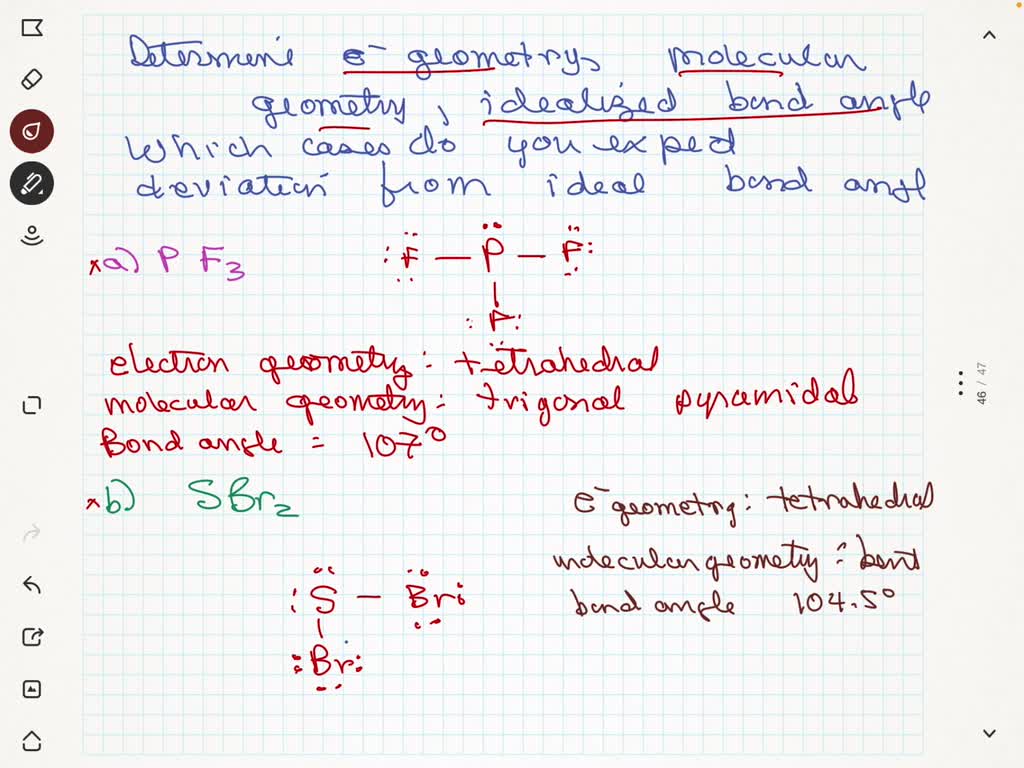 Determine e⁻ geometry, molecular
geometry, idealized bond angle
Which cases do you expect
deviation from ideal bond angle
*a) P F3
:F — P — F:
:F:
electron geometry: tetrahedral
molecular geometry: trigonal pyramidal
Bond angle = 107°
*b) SBr2
e⁻ geometry: tetrahedral
molecular geometry: bent
bond angle 104.5°
:S — Br:
:Br:
46 / 47